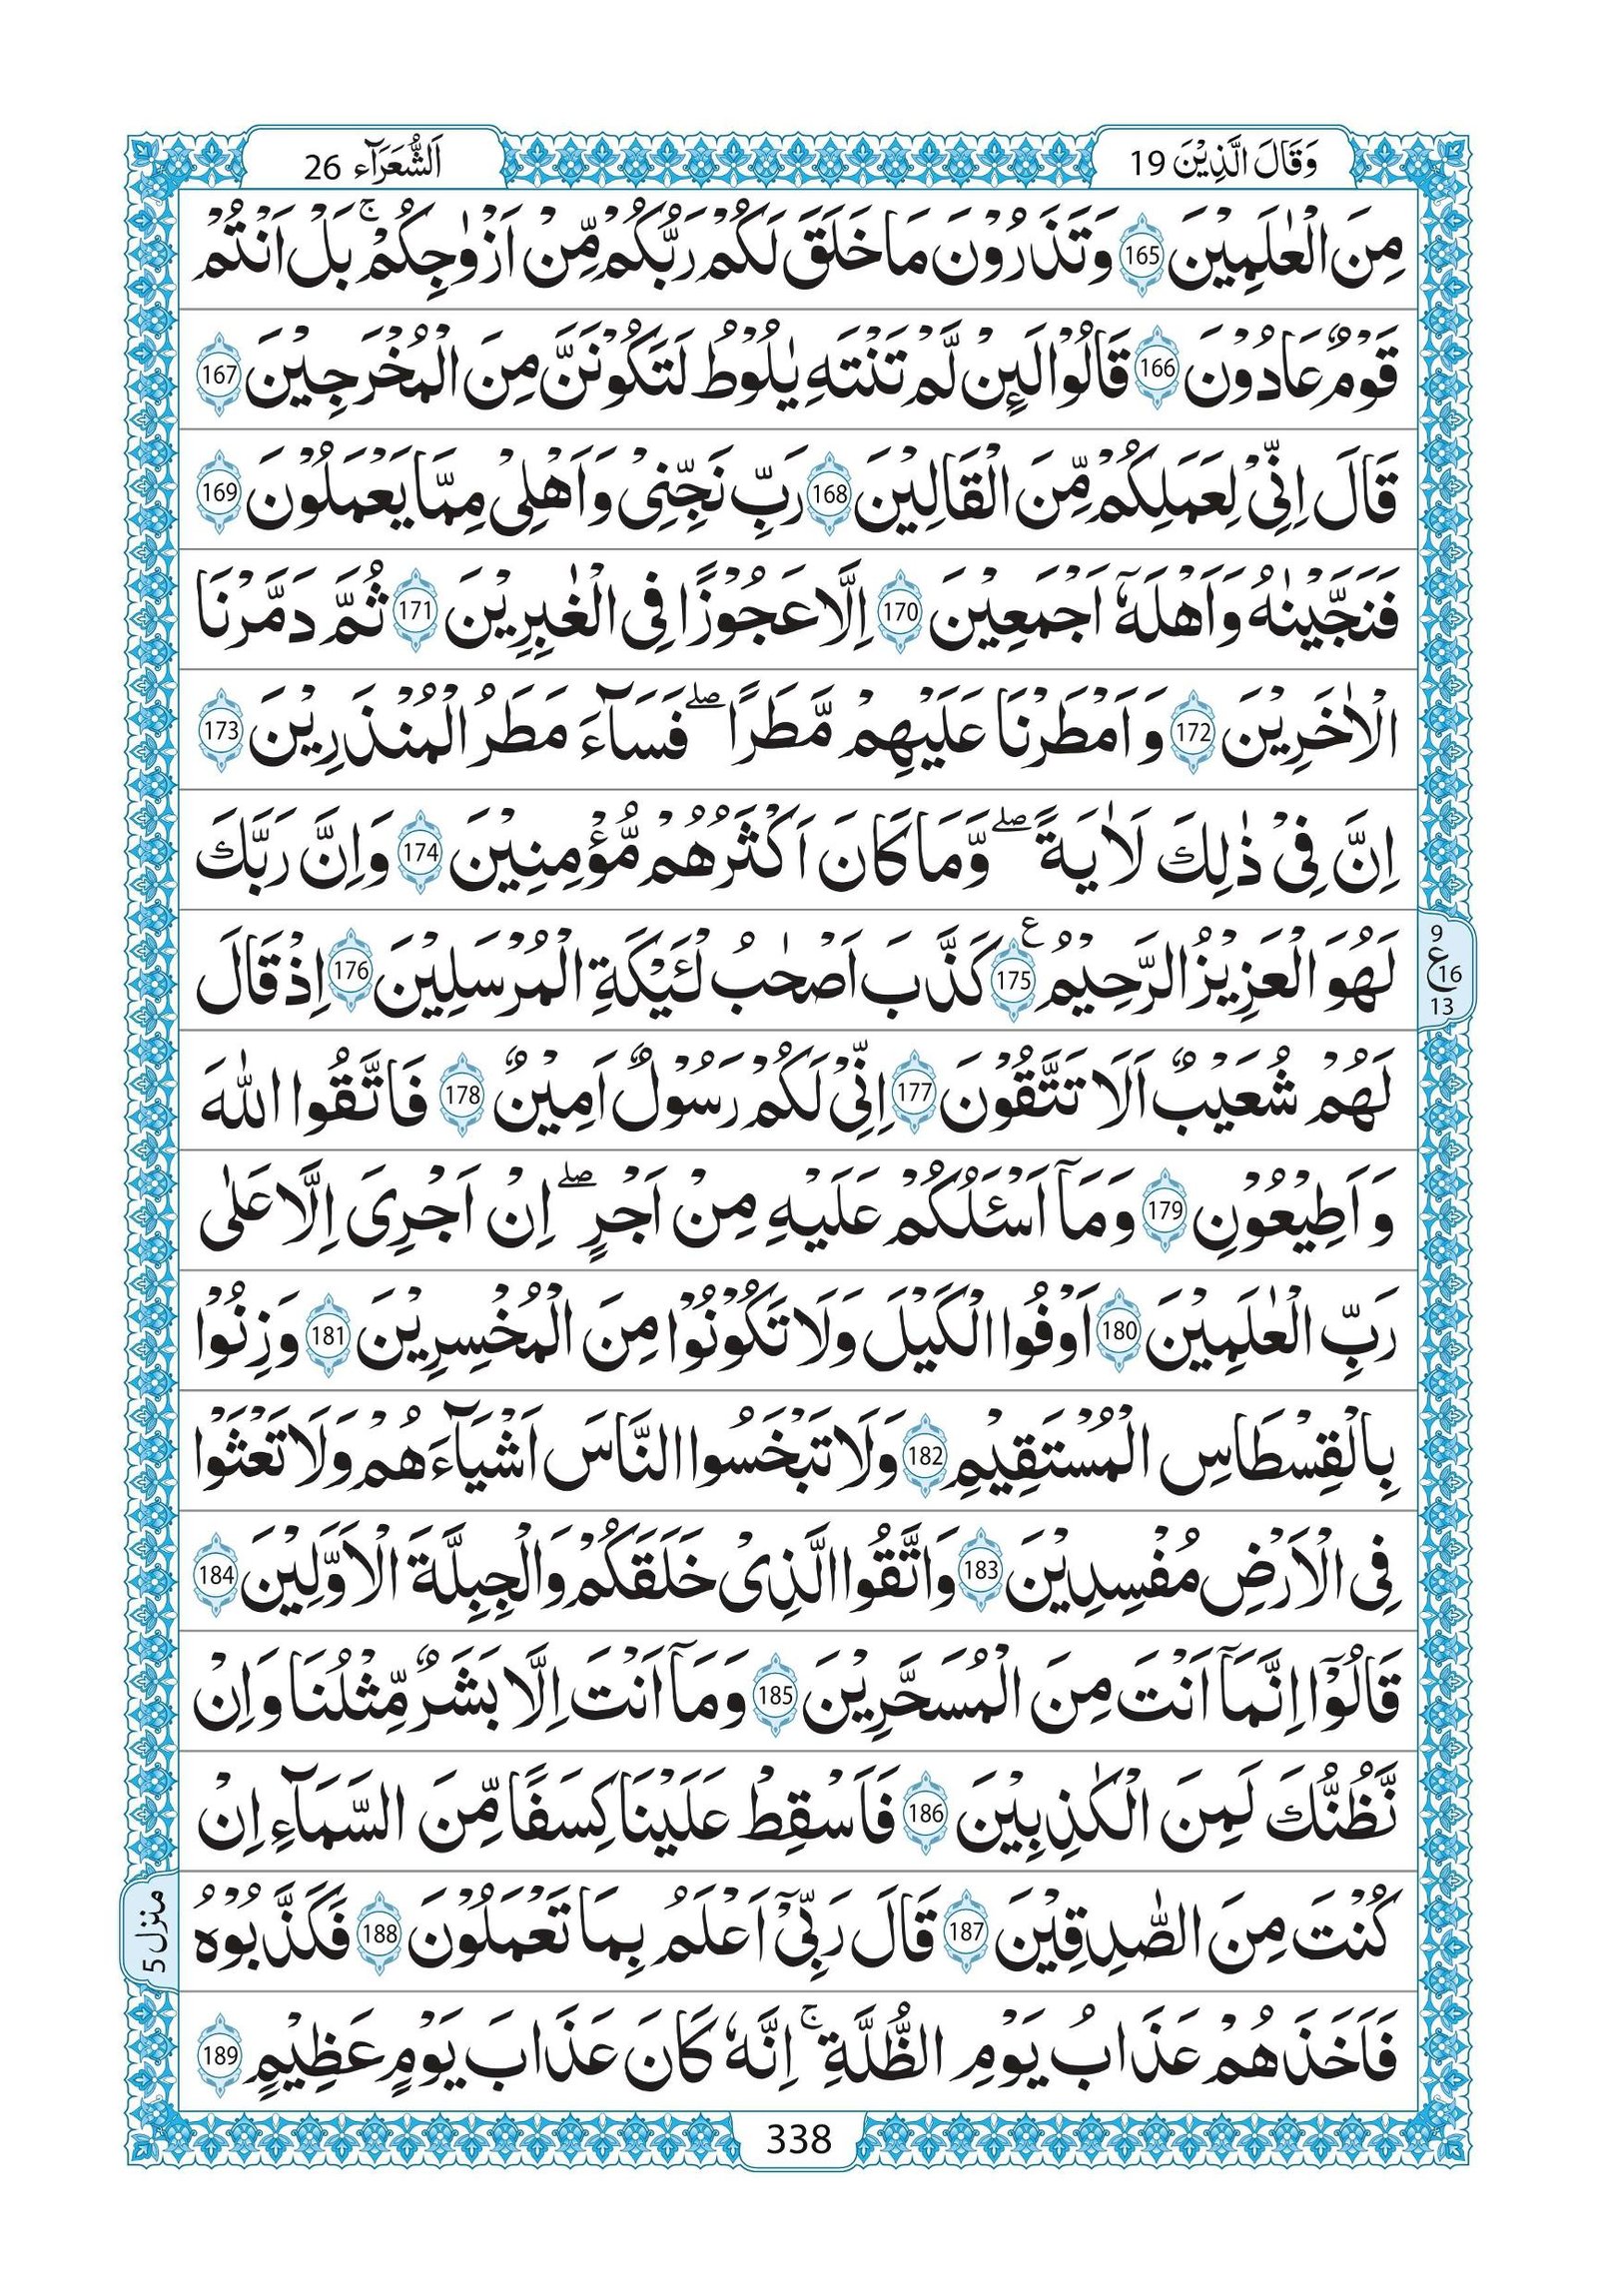 وَقَالَ الَّذِيْنَ 19
اَلشُّعَرَآء 26
مِنَ الْعٰلَمِيْنَ 165 وَتَذَرُوْنَ مَا خَلَقَ لَكُمْ رَبُّكُمْ مِّنْ اَزْوٰجِكُمْ ۚ بَلْ اَنْتُمْ
قَوْمٌ عَادُوْنَ 166 قَالُوْا لَىِٕنْ لَّمْ تَنْتَهِ يٰلُوْطُ لَتَكُوْنَنَّ مِنَ الْمُخْرَجِيْنَ 167
قَالَ اِنِّىْ لِعَمَلِكُمْ مِّنَ الْقَالِيْنَ 168 رَبِّ نَجِّنِىْ وَاَهْلِىْ مِمَّا يَعْمَلُوْنَ 169
فَنَجَّيْنٰهُ وَاَهْلَهٗٓ اَجْمَعِيْنَ 170 اِلَّا عَجُوْزًا فِى الْغٰبِرِيْنَ 171 ثُمَّ دَمَّرْنَا
الْاٰخَرِيْنَ 172 وَاَمْطَرْنَا عَلَيْهِمْ مَّطَرًا ۖ فَسَآءَ مَطَرُ الْمُنْذَرِيْنَ 173
اِنَّ فِىْ ذٰلِكَ لَاٰيَةً ۖ وَّمَا كَانَ اَكْثَرُهُمْ مُّؤْمِنِيْنَ 174 وَاِنَّ رَبَّكَ
لَهُوَ الْعَزِيْزُ الرَّحِيْمُ 175 ع كَذَّبَ اَصْحٰبُ لْـَٔيْكَةِ الْمُرْسَلِيْنَ 176 اِذْ قَالَ
9
ع 16
13
لَهُمْ شُعَيْبٌ اَلَا تَتَّقُوْنَ 177 اِنِّىْ لَكُمْ رَسُوْلٌ اَمِيْنٌ 178 فَاتَّقُوا اللّٰهَ
وَاَطِيْعُوْنِ 179 وَمَآ اَسْـَٔلُكُمْ عَلَيْهِ مِنْ اَجْرٍ ۖ اِنْ اَجْرِىَ اِلَّا عَلٰى
رَبِّ الْعٰلَمِيْنَ 180 اَوْفُوا الْكَيْلَ وَلَا تَكُوْنُوْا مِنَ الْمُخْسِرِيْنَ 181 وَزِنُوْا
بِالْقِسْطَاسِ الْمُسْتَقِيْمِ 182 وَلَا تَبْخَسُوا النَّاسَ اَشْيَآءَهُمْ وَلَا تَعْثَوْا
فِى الْاَرْضِ مُفْسِدِيْنَ 183 وَاتَّقُوا الَّذِىْ خَلَقَكُمْ وَالْجِبِلَّةَ الْاَوَّلِيْنَ 184
قَالُوْٓا اِنَّمَآ اَنْتَ مِنَ الْمُسَحَّرِيْنَ 185 وَمَآ اَنْتَ اِلَّا بَشَرٌ مِّثْلُنَا وَاِنْ
نَّظُنُّكَ لَمِنَ الْكٰذِبِيْنَ 186 فَاَسْقِطْ عَلَيْنَا كِسَفًا مِّنَ السَّمَآءِ اِنْ
كُنْتَ مِنَ الصّٰدِقِيْنَ 187 قَالَ رَبِّىْٓ اَعْلَمُ بِمَا تَعْمَلُوْنَ 188 فَكَذَّبُوْهُ
منزل 5
فَاَخَذَهُمْ عَذَابُ يَوْمِ الظُّلَّةِ ۚ اِنَّهٗ كَانَ عَذَابَ يَوْمٍ عَظِيْمٍ 189
338